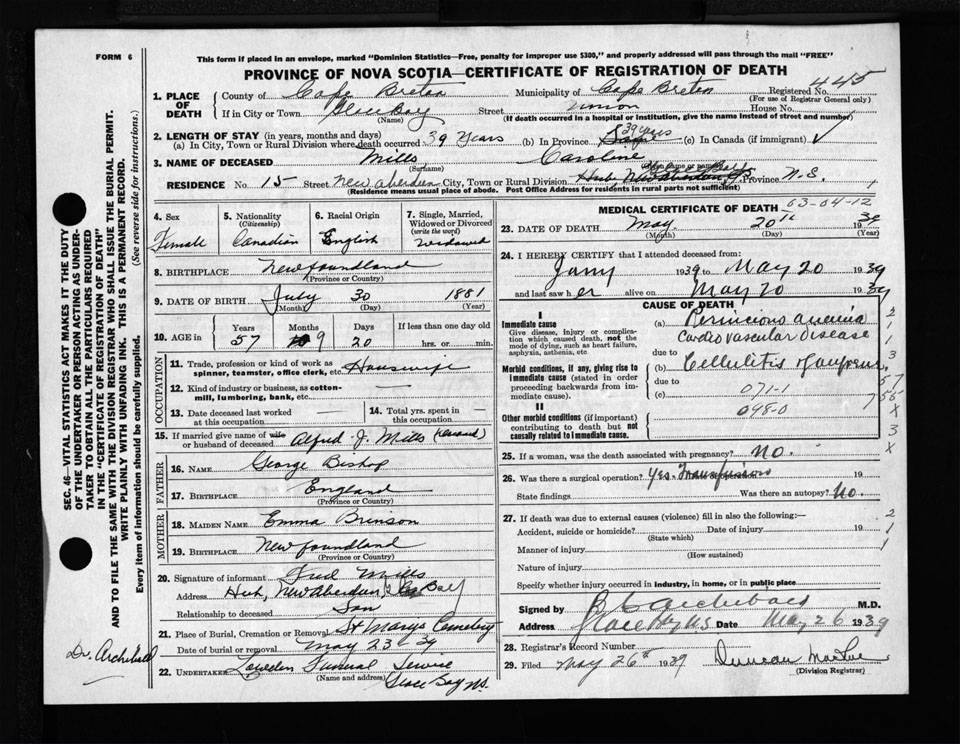 FORM 6
This form if placed in an envelope, marked "Dominion Statistics—Free, penalty for improper use $300," and properly addressed will pass through the mail "FREE"
PROVINCE OF NOVA SCOTIA—CERTIFICATE OF REGISTRATION OF DEATH
1. PLACE OF DEATH
County of Cape Breton Municipality of Cape Breton Registered No. 445
(For use of Registrar General only)
If in City or Town Glace Bay Street Union House No.
(Name) (If death occurred in a hospital or institution, give the name instead of street and number)
2. LENGTH OF STAY (in years, months and days)
(a) In City, Town or Rural Division where death occurred 39 Years (b) In Province 39 years (c) In Canada (if immigrant) ✓
3. NAME OF DECEASED Mills Caroline
(Surname)
RESIDENCE No. 15 Street New Aberdeen City, Town or Rural Division Hub, New Aberdeen Province N.S.
(Residence means usual place of abode. Post Office Address for residents in rural parts not sufficient)
4. Sex
Female
5. Nationality (Citizenship)
Canadian
6. Racial Origin
English
7. Single, Married, Widowed or Divorced (write the word)
Widowed
8. BIRTHPLACE Newfoundland
(Province or Country)
9. DATE OF BIRTH July 30 1881
(Month) (Day) (Year)
10. AGE in Years Months Days If less than one day old
57 9 20 hrs. or min.
OCCUPATION
11. Trade, profession or kind of work as spinner, teamster, office clerk, etc. Housewife
12. Kind of industry or business, as cotton-mill, lumbering, bank, etc. —
13. Date deceased last worked at this occupation —
14. Total yrs. spent in this occupation —
15. If married give name of wife or husband of deceased Alfred J. Mills
FATHER
16. NAME George Bishop
17. BIRTHPLACE England
(Province or Country)
MOTHER
18. MAIDEN NAME Emma Brinson
19. BIRTHPLACE Newfoundland
(Province or Country)
20. Signature of informant Fred Mills
Address Hub, New Aberdeen, Bay
Relationship to deceased Son
21. Place of Burial, Cremation or Removal St Marys Cemetery
Date of burial or removal May 23 39
22. UNDERTAKER Funeral Service
(Name and address) Glace Bay NS.
MEDICAL CERTIFICATE OF DEATH 63-04-12
23. DATE OF DEATH May 20th 1939
(Month) (Day) (Year)
24. I HEREBY CERTIFY that I attended deceased from:
Jany 1939 to May 20 1939
and last saw her alive on May 20 1939
CAUSE OF DEATH
I
Immediate cause
Give disease, injury or complication which caused death, not the mode of dying, such as heart failure, asphyxia, asthenia, etc.
(a) Pernicious anemia
Cardiovascular disease
due to
Morbid conditions, if any, giving rise to immediate cause (stated in order proceeding backwards from immediate cause).
(b) Cellulitis of
due to
(c) 071-1
098-0
II
Other morbid conditions (if important) contributing to death but not causally related to immediate cause.
25. If a woman, was the death associated with pregnancy? No.
26. Was there a surgical operation? Yes. Transfusions 19
State findings Was there an autopsy? No.
27. If death was due to external causes (violence) fill in also the following:—
Accident, suicide or homicide? Date of injury 19
(State which)
Manner of injury
(How sustained)
Nature of injury
Specify whether injury occurred in industry, in home, or in public place
Signed by Archibald M.D.
Address Glace Bay NS Date May 26 1939
28. Registrar's Record Number
29. Filed May 26th 1939 Duncan
(Division Registrar)
SEC. 46—VITAL STATISTICS ACT MAKES IT THE DUTY OF THE UNDERTAKER OR PERSON ACTING AS UNDERTAKER TO OBTAIN ALL THE PARTICULARS REQUIRED IN THE "CERTIFICATE OF REGISTRATION OF DEATH" AND TO FILE THE SAME WITH THE DIVISION REGISTRAR WHO SHALL ISSUE THE BURIAL PERMIT.
WRITE PLAINLY WITH UNFADING INK. THIS IS A PERMANENT RECORD.
Every item of information should be carefully supplied. (See reverse side for instructions.)
Dr. Archibald